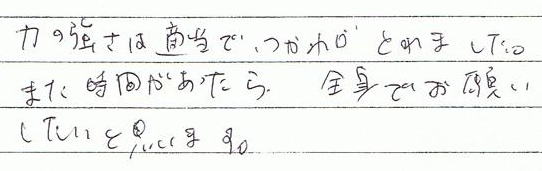 力の強さは適当で、つかれがとれました。
また時間があったら、全身でお願い
したいと思います。